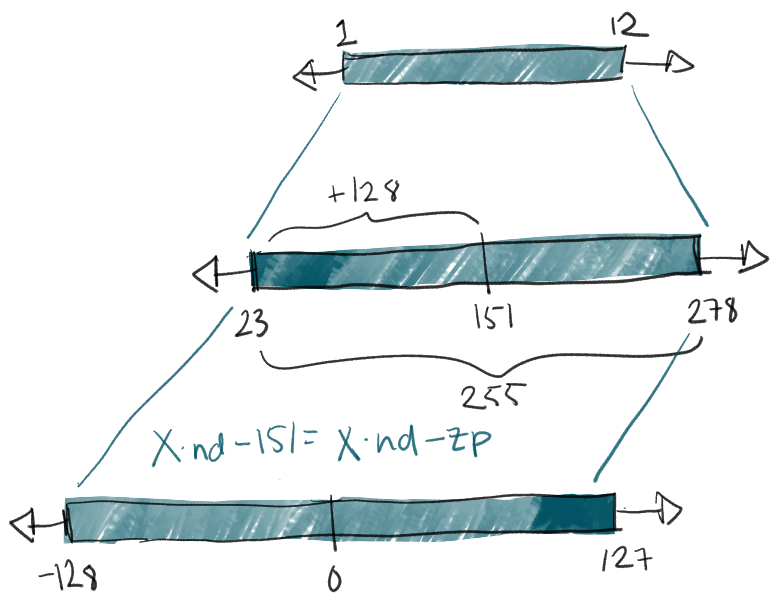 1 12
+128
23 151 278
255
X·nd-151= X·nd-zp
-128 0 127